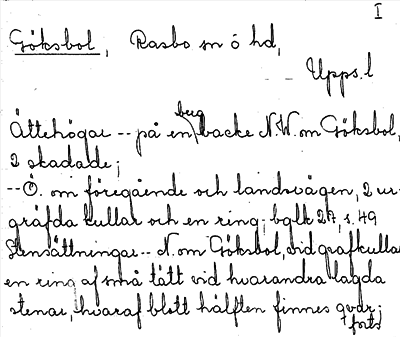 I
Göksbol, Rasbo sn ö hd,
-- Upps. l
Ättehögar -- på en berg backe N.W. om Göksbol,
2 skadade;
-- Ö. om föregående och landsvägen, 2 ur-
gräfda kullar och en ring; bglk 27, s. 49
Stensättningar -- N. om Göksbol, vid grafkullar
en ring af små tätt vid hvarandra lagda
stenar, hvaraf blott hälften finnes qvar;
forts